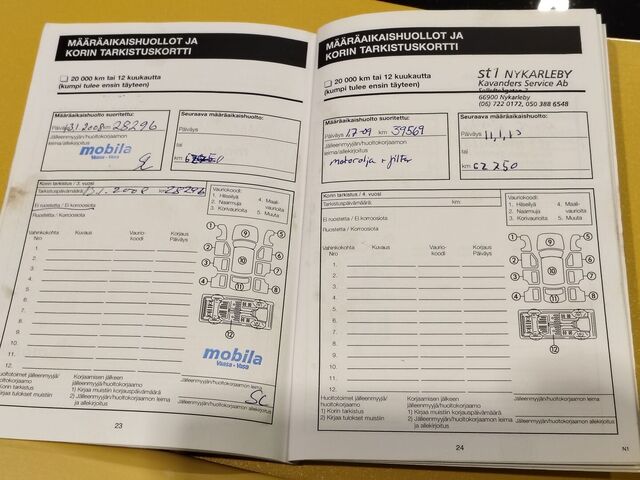 MÄÄRÄAIKAISHUOLLOT JA
KORIN TARKISTUSKORTTI
20 000 km tai 12 kuukautta
(kumpi tulee ensin täyteen)
Määräaikaishuolto suoritettu:
Päiväys 13.1.2008 km 28296
Jälleenmyyjän/huoltokorjaamon
leima/allekirjoitus
mobila
Vaasa - Vasa
Seuraava määräaikaishuolto:
Päiväys
km
Korin tarkistus / 3. vuosi
Tarkistuspäivämäärä: 13.1.2008 km: 28296
Ei ruostetta / Ei korroosiota
Ruostetta / Korroosiota
Vauriokoodi:
1. Hilseilyä
2. Naarmuja
3. Korivaurioita
4. Maali-
vaurioita
5. Muuta
Vahinkokohta
Nro
Kuvaus
Vaurio-
koodi
Korjaus
Päiväys
1.
2.
3.
4.
5.
6.
7.
8.
9.
10.
11.
12.
1
2
3
4
5
6
7
8
9
10
11
12
mobila
Vaasa - Vasa
Huoltotoimet jälleenmyyjä/
huoltokorjaamo
1) Korin tarkistus
2) Kirjaa tulokset muistiin
Korjaamisen jälkeen
jälleenmyyjä/huoltokorjaamo
1) Kirjaa muistiin korjauspäivämäärä
2) Jälleenmyyjän/huoltokorjaamon leima
ja allekirjoitus
Jälleenmyyjän/huoltokorjaamon leima
SC
23
MÄÄRÄAIKAISHUOLLOT JA
KORIN TARKISTUSKORTTI
20 000 km tai 12 kuukautta
(kumpi tulee ensin täyteen)
st1 NYKARLEBY
Kavanders Service Ab
66900 Nykarleby
(06) 722 0172, 050 388 6548
Määräaikaishuolto suoritettu:
Päiväys km 39569
Jälleenmyyjän/huoltokorjaamon
leima/allekirjoitus
motorolja + filter
Seuraava määräaikaishuolto:
Päiväys
km 62750
Korin tarkistus / 4. vuosi
Tarkistuspäivämäärä: km:
Ei ruostetta / Ei korroosiota
Ruostetta / Korroosiota
Vauriokoodi:
1. Hilseilyä
2. Naarmuja
3. Korivaurioita
4. Maali-
vaurioita
5. Muuta
Vahinkokohta
Nro
Kuvaus
Vaurio-
koodi
Korjaus
Päiväys
1.
2.
3.
4.
5.
6.
7.
8.
9.
10.
11.
12.
1
2
3
4
5
6
7
8
9
10
11
12
Huoltotoimet jälleenmyyjä/
huoltokorjaamo
1) Korin tarkistus
2) Kirjaa tulokset muistiin
Korjaamisen jälkeen
jälleenmyyjä/huoltokorjaamo
1) Kirjaa muistiin korjauspäivämäärä
2) Jälleenmyyjän/huoltokorjaamon leima
ja allekirjoitus
Jälleenmyyjän/huoltokorjaamon leima
24
N1